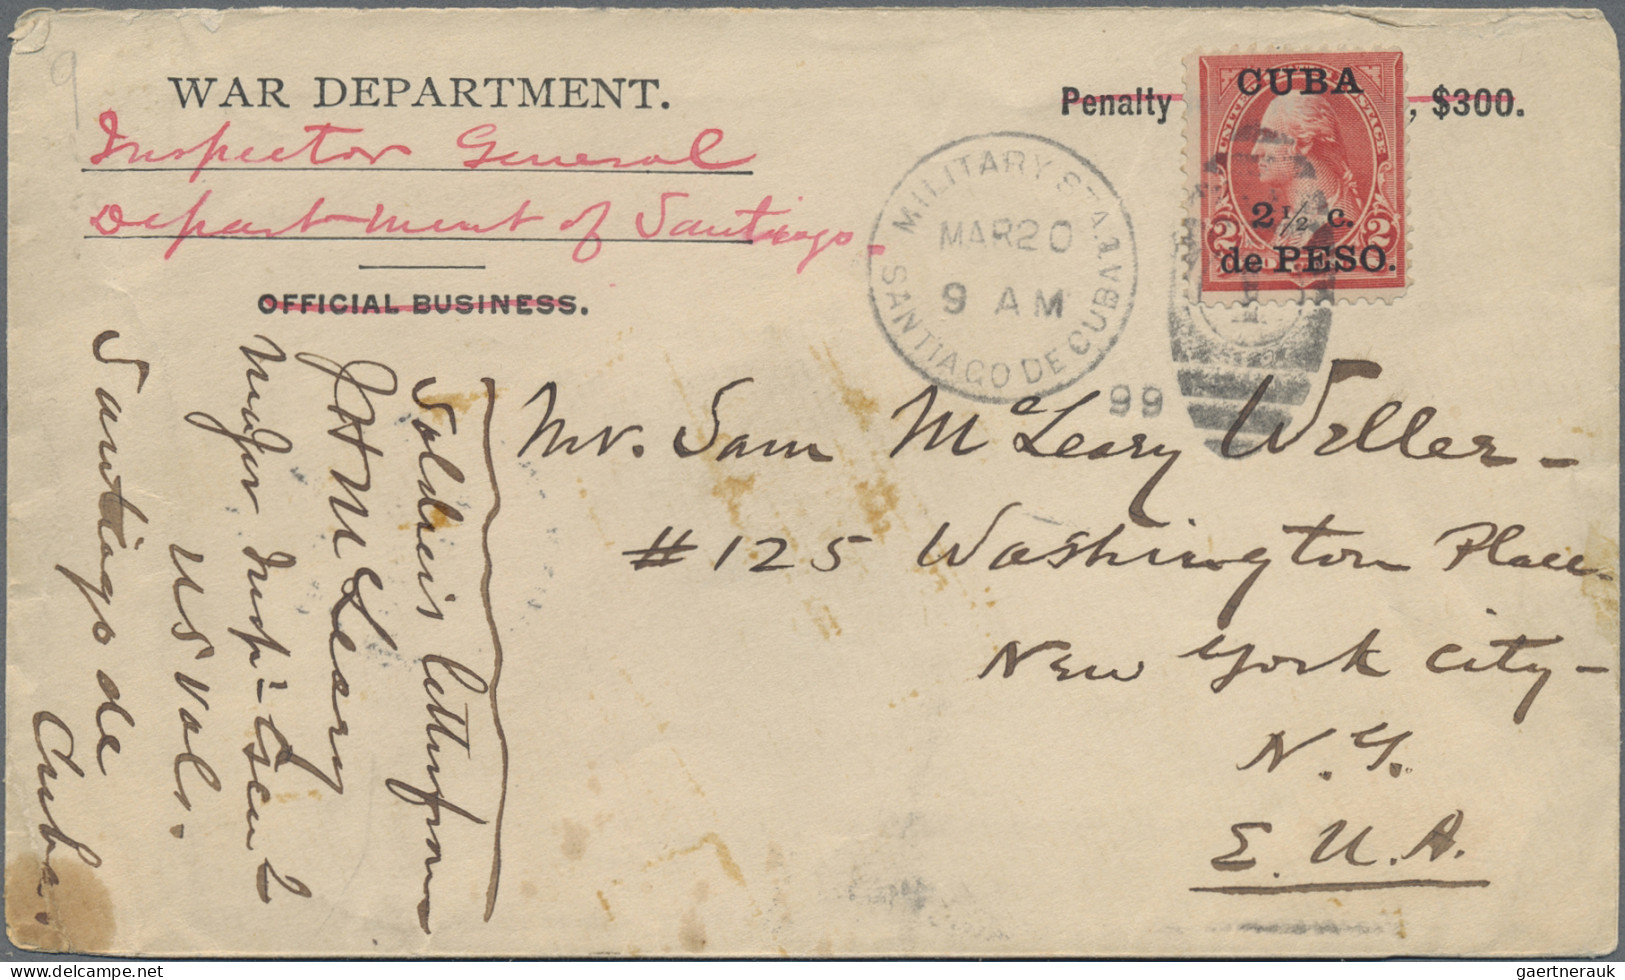 WAR DEPARTMENT.
Inspector General
Department of Santiago.
OFFICIAL BUSINESS.
Penalty
, $300.
CUBA
2 ½ c.
de PESO.
2 2
MILITARY STA. 1
MAR 20
9 AM
SANTIAGO DE CUBA
99
Mr. Sam McLeary Weller -
# 125 Washington Place -
New York City -
N. Y.
E. U. A.
Soldier's letter from
J H McLeary
Major Insp = Genl
US Vols.
Santiago de
Cuba.
9
gaertnerauk